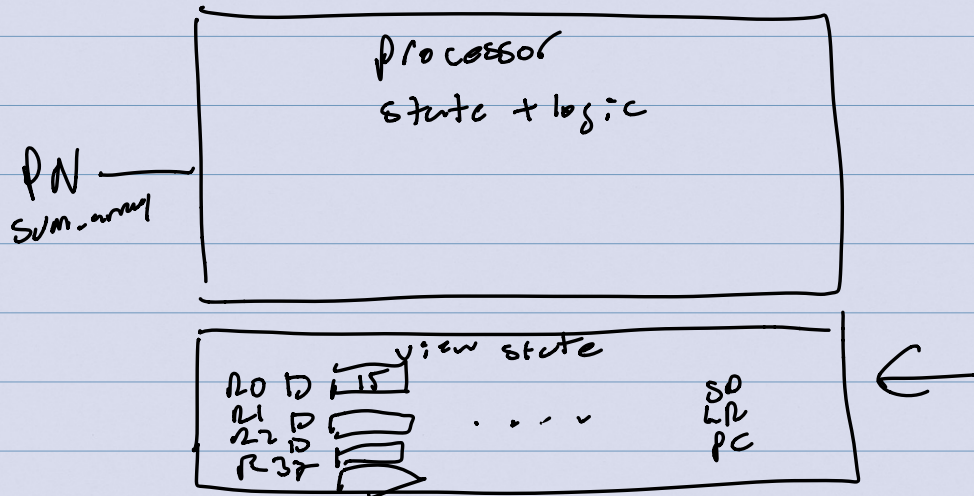 processor
state + logic
PN
sum_array
view state
R0 D 15 SP
R1 D . . . . LR
R2 D PC
R3